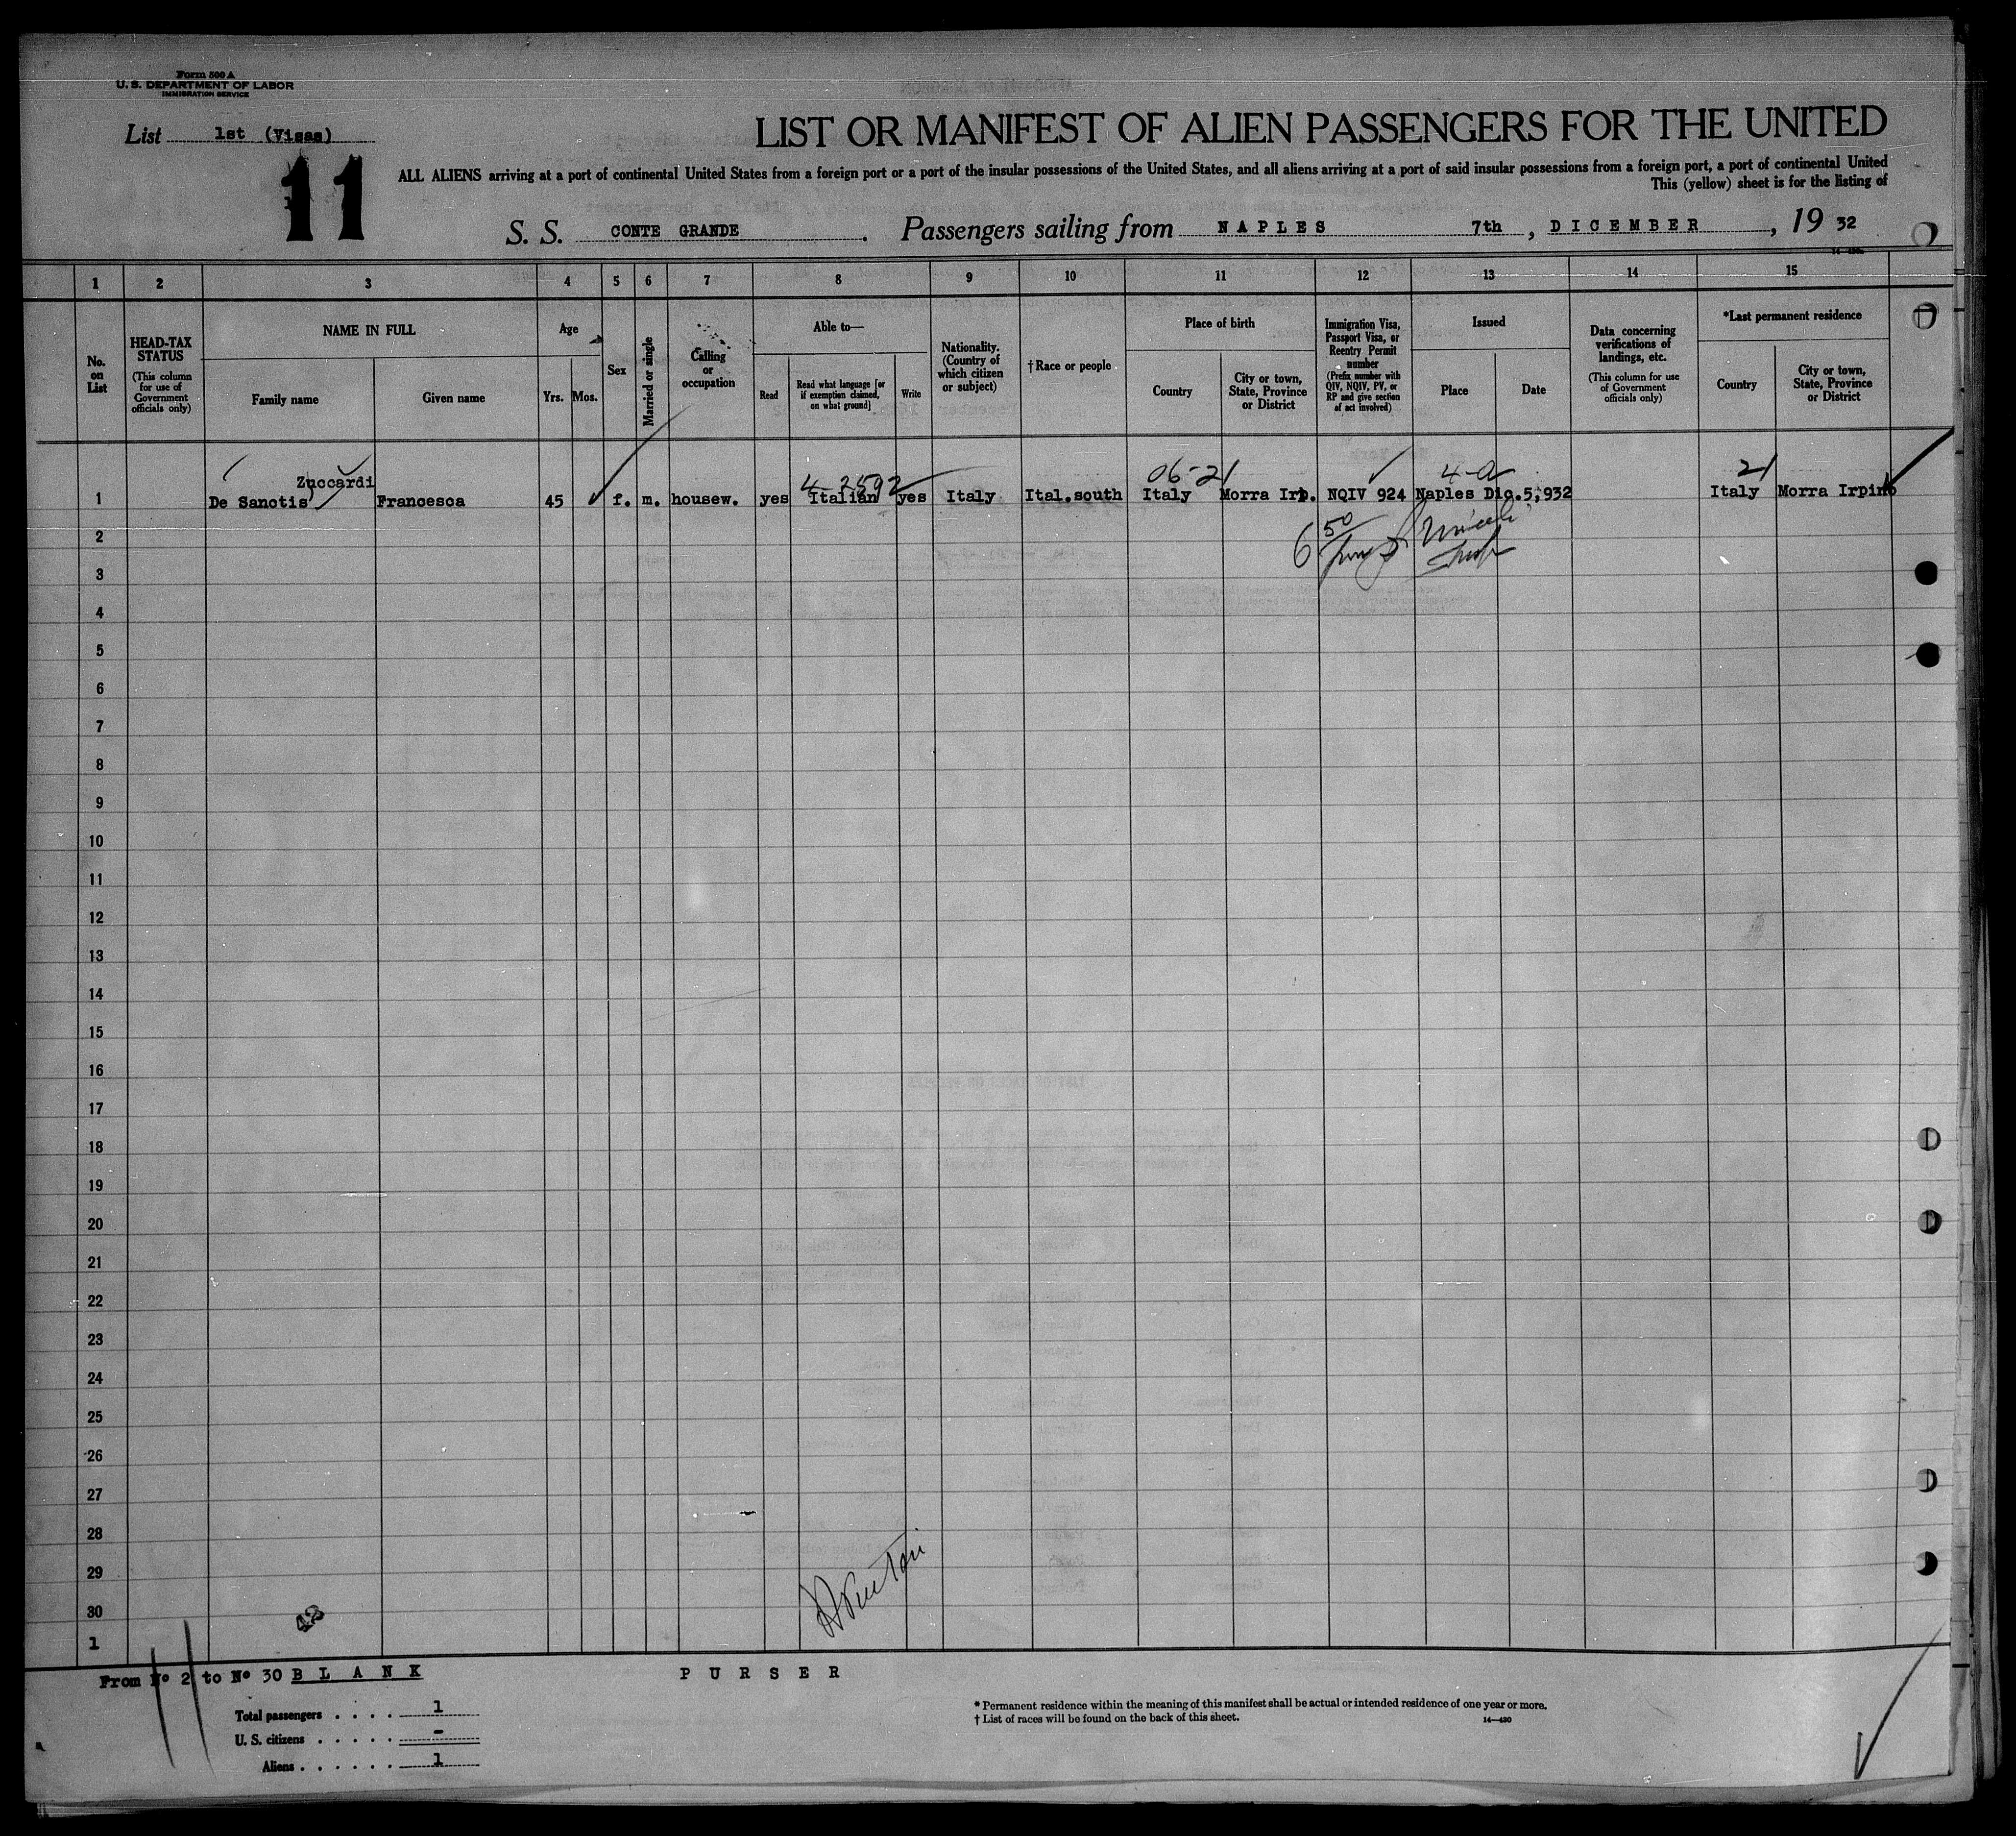 Form 500 A
U. S. DEPARTMENT OF LABOR
IMMIGRATION SERVICE
List 1st (Visas)
11
LIST OR MANIFEST OF ALIEN PASSENGERS FOR THE UNITED
ALL ALIENS arriving at a port of continental United States from a foreign port or a port of the insular possessions of the United States, and all aliens arriving at a port of said insular possessions from a foreign port, a port of continental United
This (yellow) sheet is for the listing of
S. S. CONTE GRANDE. Passengers sailing from NAPLES 7th, DICEMBER, 19 32
1 2 3 4 5 6 7 8 9 10 11 12 13 14 15
No. on List
HEAD-TAX STATUS (This column for use of Government officials only)
NAME IN FULL
Family name
Given name
Age
Yrs. Mos.
Sex
Married or single
Calling or occupation
Able to—
Read
Read what language [or if exemption claimed, on what ground]
Write
Nationality. (Country of which citizen or subject)
†Race or people
Place of birth
Country
City or town, State, Province or District
Immigration Visa, Passport Visa, or Reentry Permit number (Prefix number with QIV, NQIV, PV, or RP and give section of act involved)
Issued
Place
Date
Data concerning verifications of landings, etc. (This column for use of Government officials only)
*Last permanent residence
Country
City or town, State, Province or District
Zuccardi 4-2592 06-21 4-a 21
1 De Sanctis Francesca 45 f. m. housew. yes Italian yes Italy Ital.south Italy Morra Irp. NQIV 924 Naples Dic.5,932 Italy Morra Irpino
6 50
2
3
4
5
6
7
8
9
10
11
12
13
14
15
16
17
18
19
20
21
22
23
24
25
26
27
28
29
30
42
1
From No 2 to No 30 BLANK
PURSER
Total passengers . . . . 1
U. S. citizens . . . . . -
Aliens . . . . . . 1
* Permanent residence within the meaning of this manifest shall be actual or intended residence of one year or more.
† List of races will be found on the back of this sheet.
14—430